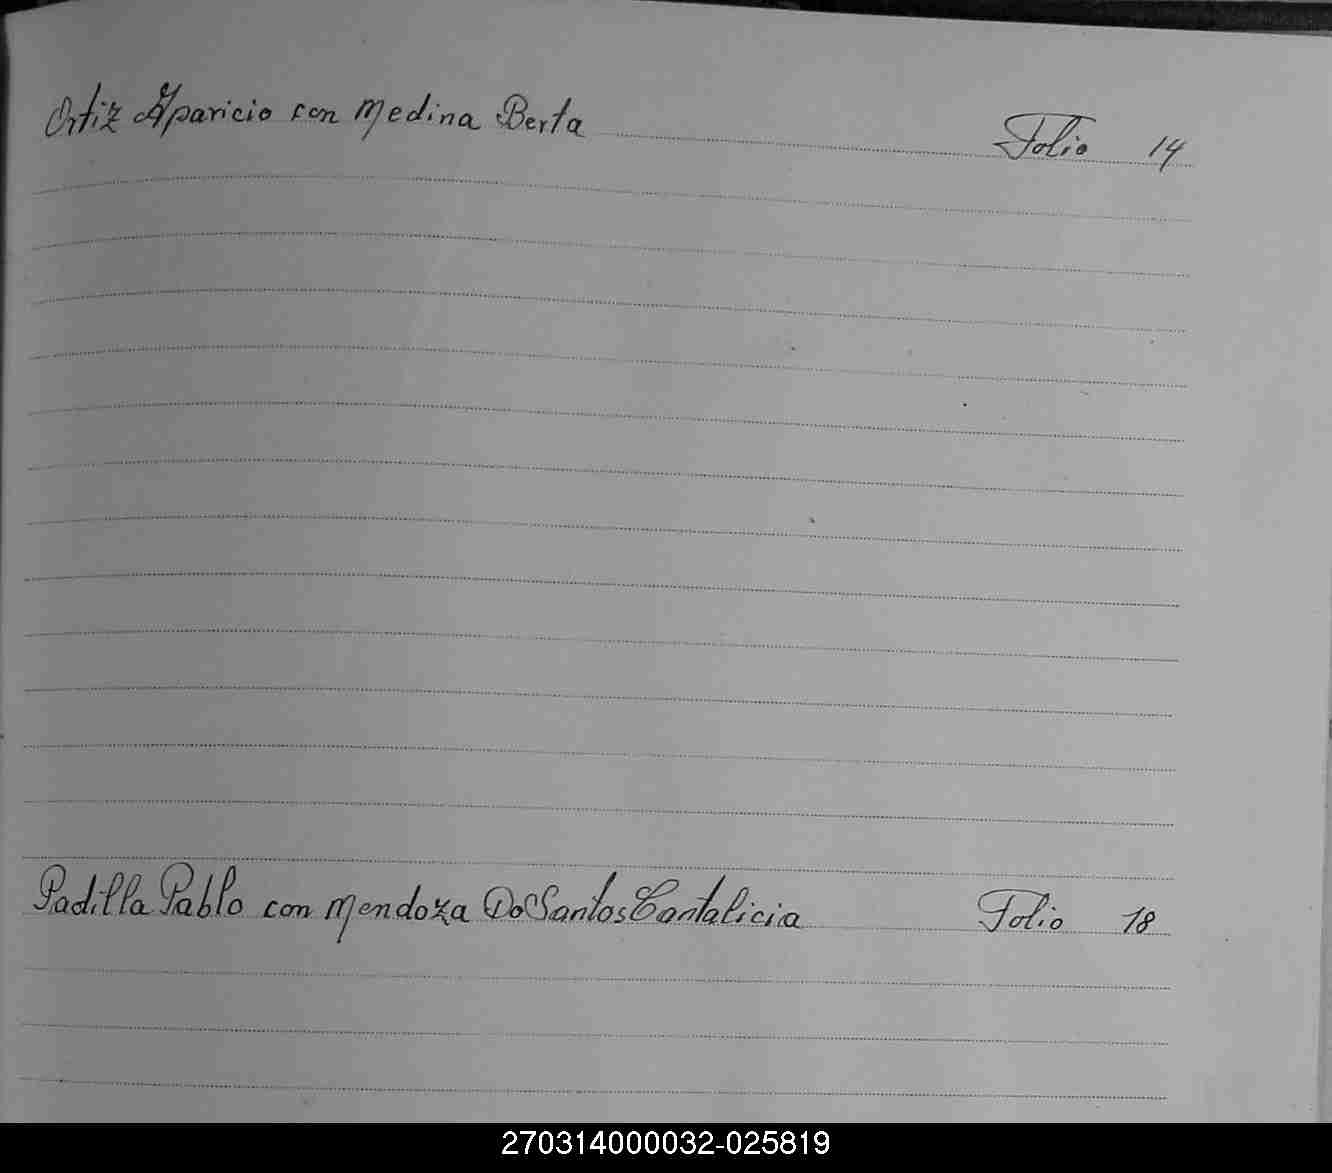 Ortiz Aparicio con Medina Berta Folio 14
Padilla Pablo con Mendoza Do Santos Cantalicia Folio 18
270314000032-025819